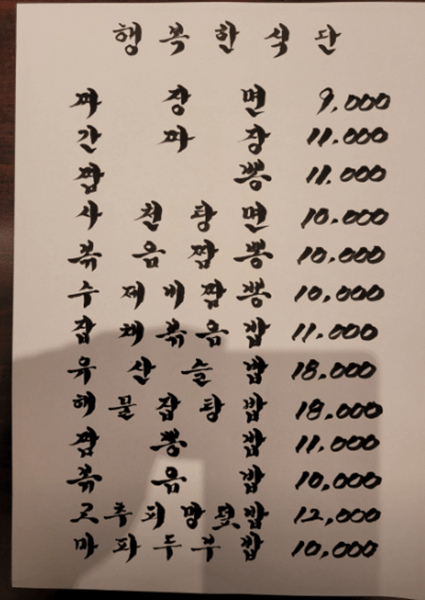 행복한식단
짜장면 9,000
간짜장 11.000
짬뽕 11.000
사천탕면 10.000
볶음짬뽕 10,000
수제비짬뽕 10,000
잡채볶음밥 11.000
유산슬밥 18.000
해물잡탕밥 18.000
짬뽕밥 11,000
볶음밥 10,000
고추피망덮밥 12,000
마파두부밥 10,000